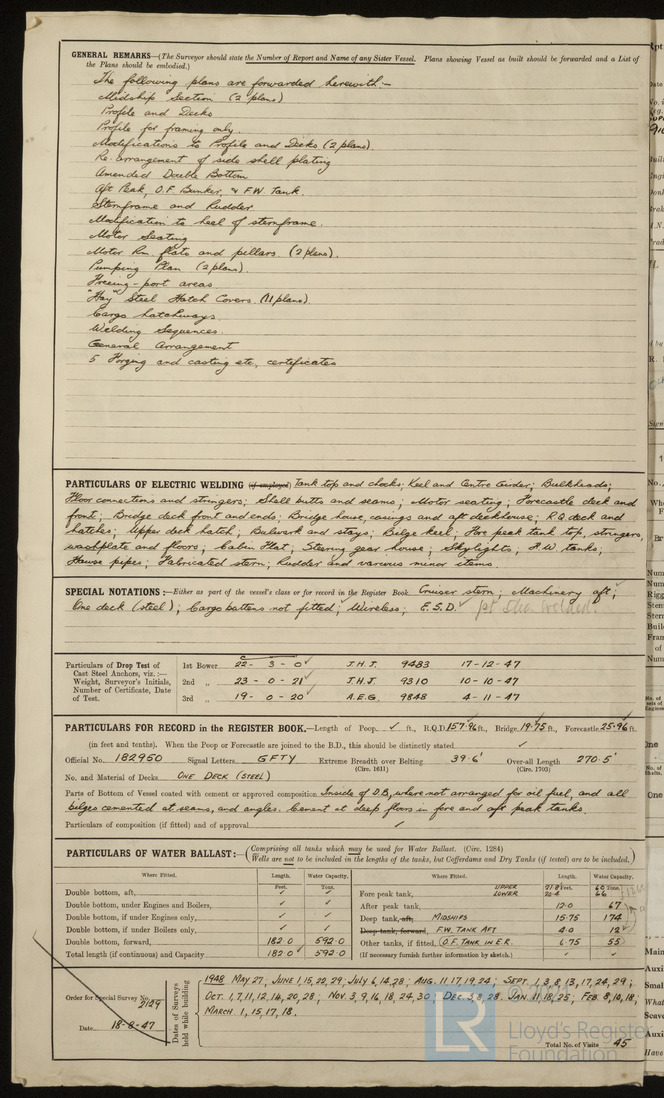 GENERAL REMARKS—(The Surveyor should state the Number of Report and Name of any Sister Vessel. Plans showing Vessel as built should be forwarded and a List of
the Plans should be embodied.)
The following plans are forwarded herewith —
Midship Section (2 plans)
Profile and Decks
Profile for framing only.
Modifications to Profile and Decks (2 plans)
Re-arrangement of side shell plating
Amended Double Bottom
Aft Peak, O.F. Bunker, & F.W. Tank.
Sternframe and Rudder
Modification to heel of sternframe.
Motor Seating
Motor Rm. flats and pillars. (2 plans).
Pumping Plan (2 plans).
Freeing-port areas
"Hay" Steel Hatch Covers. (11 plans).
Cargo hatchways.
Welding Sequences.
General Arrangement
5 Forging and casting etc, certificates
PARTICULARS OF ELECTRIC WELDING (if employed) Tank top and chocks; Keel and Centre Girder; Bulkheads;
Floor connections and stringers; Shell butts and seams; Motor seating; Forecastle deck and
front; Bridge deck front and ends; Bridge house, casings and aft deckhouse; R.Q deck and
hatches; Upper deck hatch; Bulwark and stays; Bilge keel; Fore peak tank top, stringers,
washplate and floors; Cabin Flat; Steering gear house; Skylights; F.W. tanks;
Hawse pipes; Fabricated stern; Rudder and various minor items.
SPECIAL NOTATIONS:—Either as part of the vessel's class or for record in the Register Book Cruiser stern; Machinery aft;
One deck (steel); Cargo battens not fitted; Wireless; E.S.D. pt Elec. Welded.
Particulars of Drop Test of
Cast Steel Anchors, viz.:—
Weight, Surveyor's Initials,
Number of Certificate, Date
of Test.
1st Bower 22 - 3 - 0 J.H.J. 9483 17-12-47
2nd „ 23 - 0 - 21 J.H.J. 9310 10-10-47
3rd „ 19 - 0 - 20 A.E.G. 9848 4-11-47
PARTICULARS FOR RECORD in the REGISTER BOOK.—Length of Poop ft., R.Q.D. 157·96 ft., Bridge 19·75 ft., Forecastle 25·96 ft.
(in feet and tenths). When the Poop or Forecastle are joined to the B.D., this should be distinctly stated
Official No. 182950 Signal Letters GFTY Extreme Breadth over Belting 39·6' Over-all Length 270·5'
(Circ. 1611) (Circ. 1703)
No. and Material of Decks ONE DECK (STEEL)
Parts of Bottom of Vessel coated with cement or approved composition Inside of D.B, where not arranged for oil fuel, and all
bilges cemented at seams, and angles. Cement at deep floors in fore and aft peak tanks.
Particulars of composition (if fitted) and of approval
PARTICULARS OF WATER BALLAST:— (Comprising all tanks which may be used for Water Ballast. (Circ. 1284)
Wells are not to be included in the lengths of the tanks, but Cofferdams and Dry Tanks (if tested) are to be included.)
Where Fitted. Length. Water Capacity. Where Fitted. Length. Water Capacity.
Feet. Tons. Feet. Tons.
Double bottom, aft,
Double bottom, under Engines and Boilers,
Double bottom, if under Engines only,
Double bottom, if under Boilers only,
Double bottom, forward, 182·0 592·0
Total length (if continuous) and Capacity 182·0 592·0
Fore peak tank, UPPER 60
LOWER 66
After peak tank, 12·0 67
Deep tank, aft, MIDSHIPS 15·75 174
Deep tank, forward, F.W. TANK AFT 4·0 12
Other tanks, if fitted, (O.F. TANK IN E.R.) 6·75 55
(If necessary furnish further information by sketch.)
Order for Special Survey No. 2129
Date 18-8-47
Dates of Surveys
held while building
1948 MAY 27, JUNE 1, 15, 22, 29; JULY 6, 14, 28; AUG. 11, 17, 19, 24; SEPT. 1, 3, 8, 13, 17, 24, 29;
OCT. 1, 7, 11, 12, 14, 20, 28, NOV. 3, 9, 16, 18, 24, 30; DEC. 3, 8, 28. JAN. 11, 18, 25; FEB. 8, 10, 18;
MARCH. 1, 15, 17, 18.
Total No. of Visits 45
LR
Lloyd's Register
Foundation